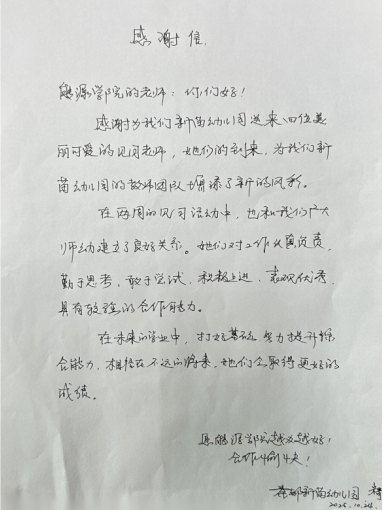 感谢信
能源学院的老师：你们好！
感谢为我们新苗幼儿园送来四位美
丽可爱的见习老师，她们的到来，为我们新
苗幼儿园的教师团队增添了新的风彩。
在两周的见习活动中，也和我们广大
师幼建立了良好关系。她们对工作认真负责，
勤于思考，敢于尝试，积极上进，表现优秀，
具有较强的合作能力。
在未来的学业中，打好基础，努力提升综
合能力，相信在不远的将来，她们会取得更好的
成绩。
愿能源学院越办越好！
合作愉快！
新苗幼儿园
2025.10.24.